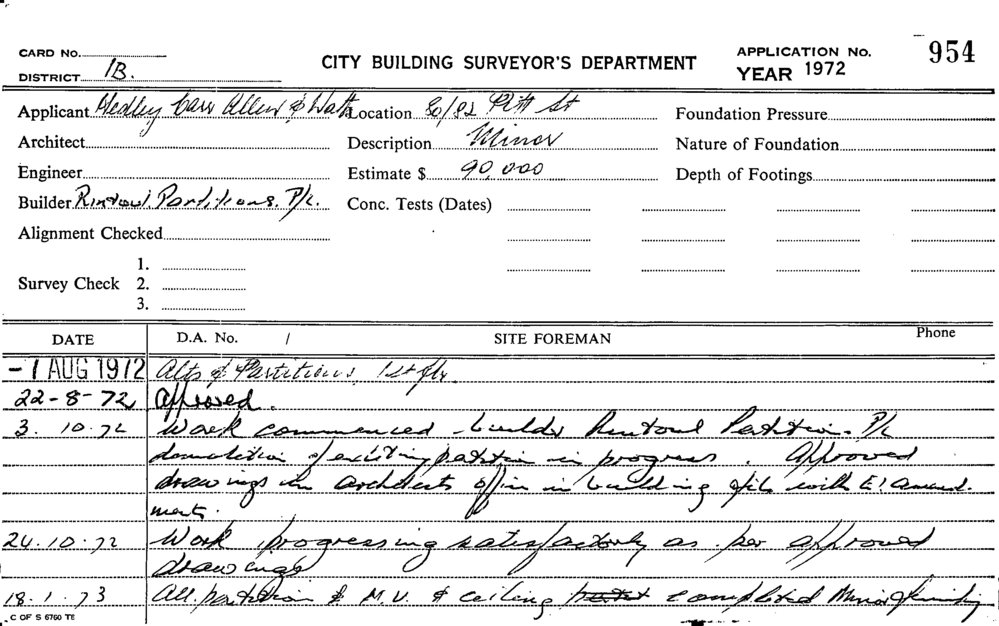 CARD No.
DISTRICT 1B.
CITY BUILDING SURVEYOR'S DEPARTMENT
APPLICATION No. 954
YEAR 1972
Applicant Hedley Carr Allen & Watts Location 80/82 Pitt St Foundation Pressure
Architect Description Minor Nature of Foundation
Engineer Estimate $ 90,000 Depth of Footings
Builder Rintoul Partitions P/L. Conc. Tests (Dates)
Alignment Checked
Survey Check 1.
2.
3.
DATE D.A. No. / SITE FOREMAN Phone
-7 AUG 1972 Alts & Partitions, 1st flr.
22-8-72 Approved.
3. 10.72 Work commenced - builder Rintoul Partition P/L
demolition of existing partition in progress. Approved
drawings in Architects office in building with amend.
ments.
24.10.72 Work progressing satisfactorily as per approved
drawings
18.1.73 All partition & M.V. & ceiling completed Minor finishing
C OF S 6760 TE